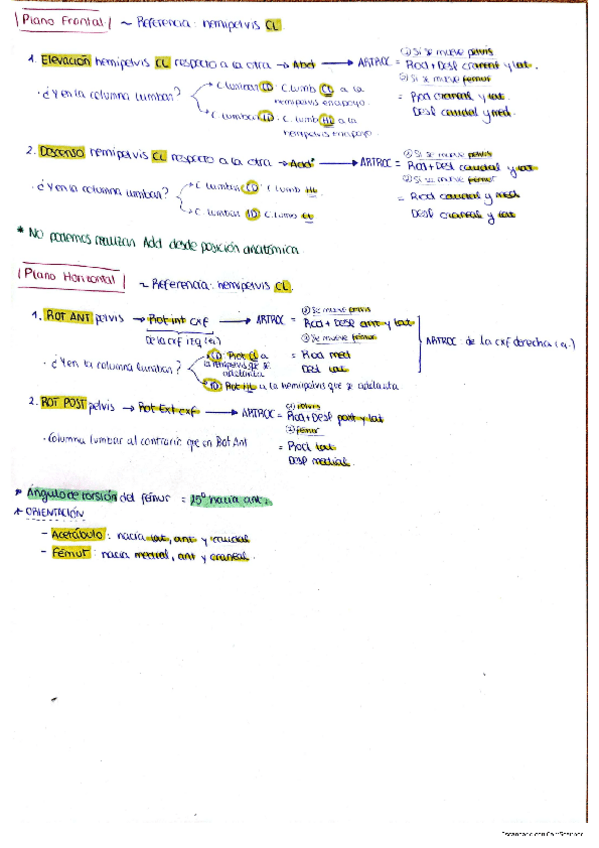 Plano Frontal ~ Referencia: hemipelvis CL.
1. Elevación hemipelvis CL respecto a la otra → Abd → ARTROC = ① Si se mueve pelvis
Rod + Desl craneal y lat.
② Si se mueve fémur
= Rod craneal y lat
Desl caudal y med.
· ¿Y en la columna lumbar?
C. lumbar CD: C. lumb CL a la
hemipelvis en apoyo.
C. lumbar ID: C. lumb HL a la
hemipelvis en apoyo.
2. Descenso hemipelvis CL respecto a la otra → Add* → ARTROC = ① Si se mueve pelvis
Rod + Desl caudal y lat
② Si se mueve fémur
= Rod caudal y med
Desl craneal y lat
· ¿Y en la columna lumbar?
C. lumbar CD: C lumb HL
C. lumbar ID: C. lumb CL
* No podemos realizar Add desde posición anatómica
Plano Horizontal ~ Referencia: hemipelvis CL.
1. ROT ANT pelvis → Rot int cxf → ARTROC = ① Si se mueve pelvis
Rod + Desl ant y lat
② Si se mueve fémur
= Rod med
Desl lat
ARTROC de la cxf derecha (ej.)
De la cxf izq (ej.)
· ¿Y en la columna lumbar?
CD: Rot CL a
la hemipelvis que se
adelanta
ID: Rot HL a la hemipelvis que se adelanta
2. ROT POST pelvis → Rot Ext cxf → ARTROC = ① Pelvis
Rod + Desl post y lat
② Fémur
= Rod lat
Desl medial.
· Columna lumbar al contrario que en Rot Ant
* Ángulo de torsión del fémur = 15° hacia ant.
* ORIENTACIÓN
- Acetábulo: hacia lat, ant y caudal
- Fémur: hacia medial, ant y craneal.
Escaneado con CamScanner